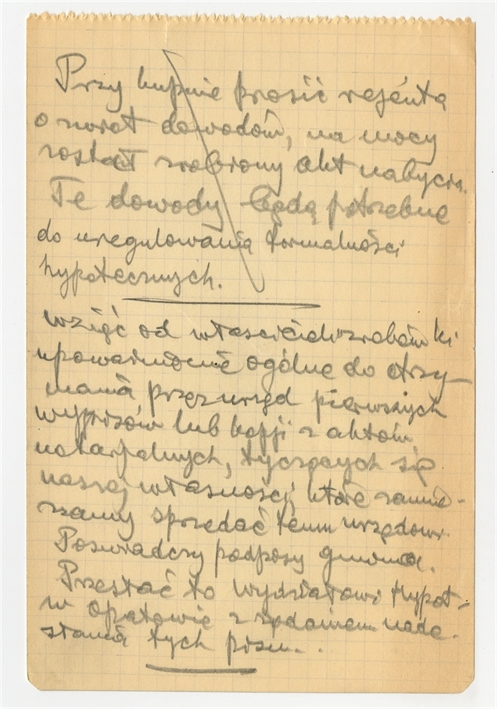 Przy kupnie prosić rejenta
o zwrot dowodów, na mocy
został zrobiony akt nabycia.
Te dowody będą potrzebne
do uregulowania formalności
hypotecznych.
wziąć od właścicieli
upoważnienie ogólne do otrzy-
mania przez urząd pierwszych
wypisów lub kopji z aktów
notarjalnych, tyczących się
naszej własności, które zamie-
rzamy sprzedać temu urzędowi.
Poświadczy podpisy gmina.
Przesłać to Wydziałowi Hypot-
w Opatowie z żądaniem nade-
słania tych pism.